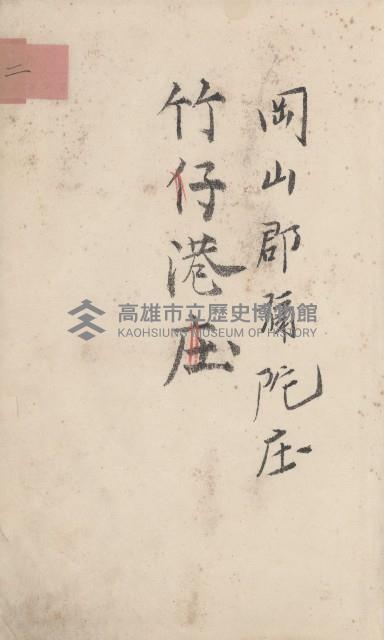 岡山郡彌陀庄
竹仔港庄
二
高雄市立歷史博物館
KAOHSIUNG MUSEUM OF HISTORY